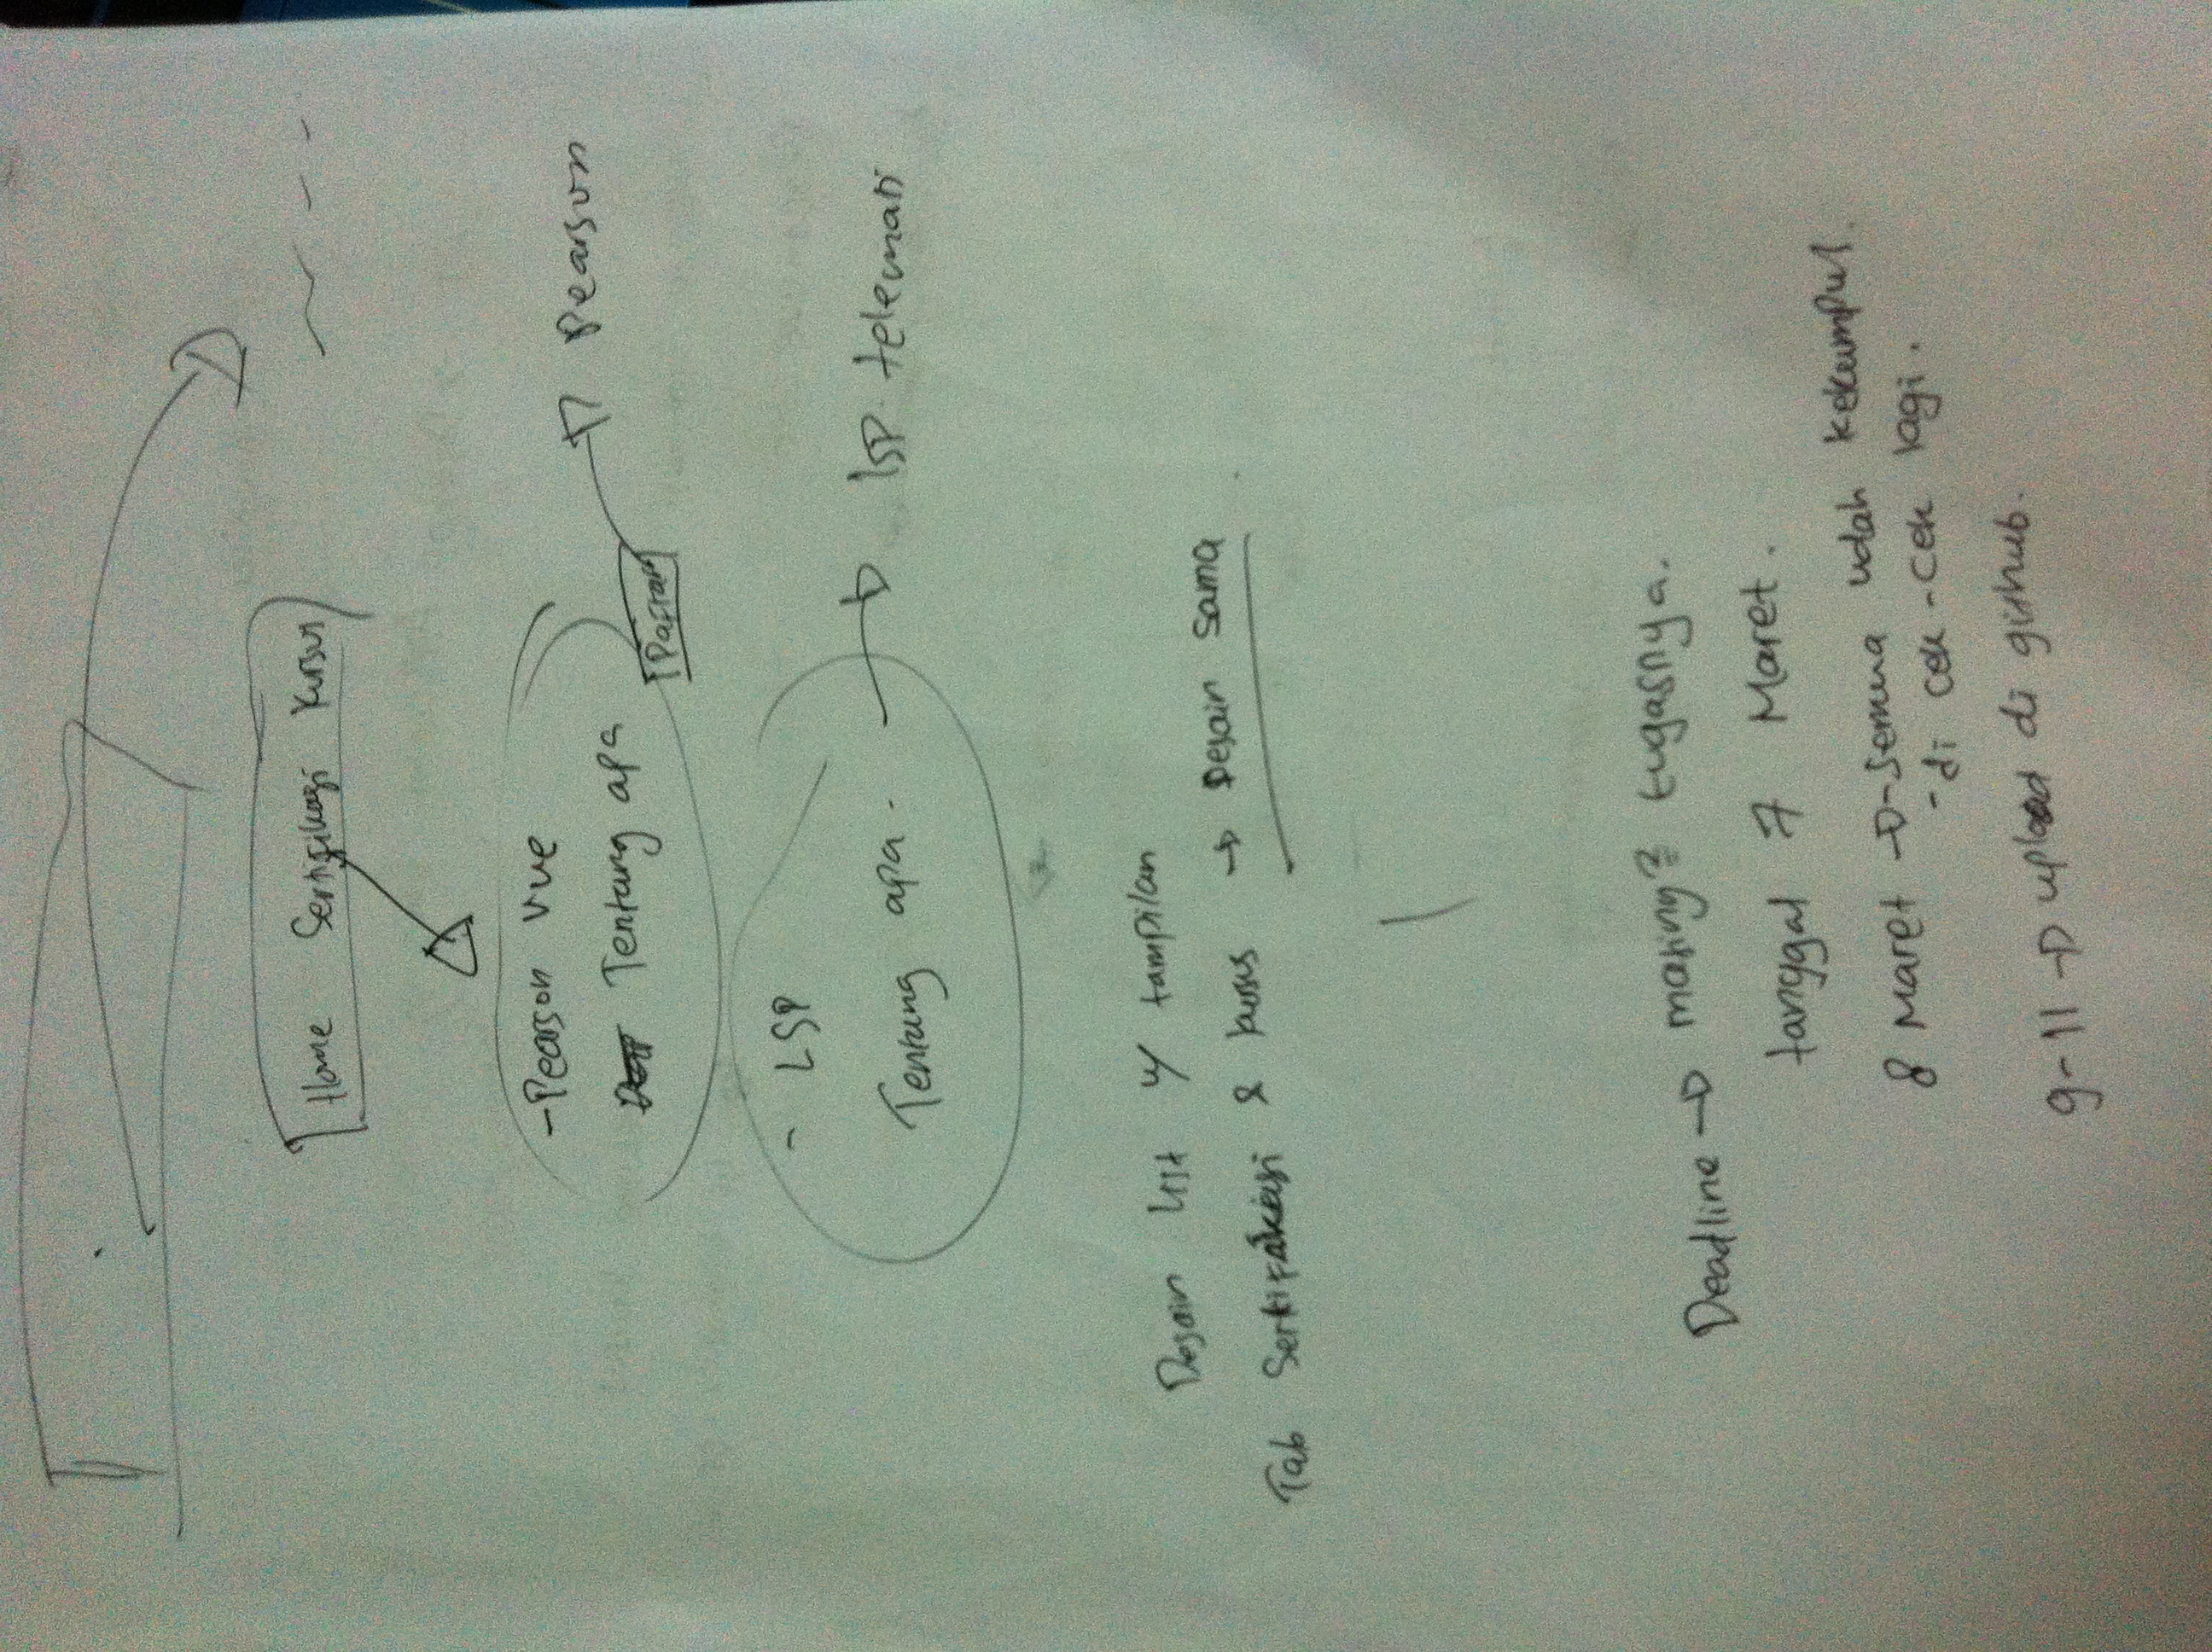 Home Sertifikasi Kursus
- Pearson Vue
Tentang apa
Daftar
Pearson
- LSP
Tentang apa.
lsp telemati
Desain list w/ tampilan
Tab Sertifikasi & kursus → Desain sama
Deadline → masing2 tugasnya.
tanggal 7 Maret.
8 Maret → - Semua udah kekumpul.
- di cek-cek lagi.
9-11 → upload di github.